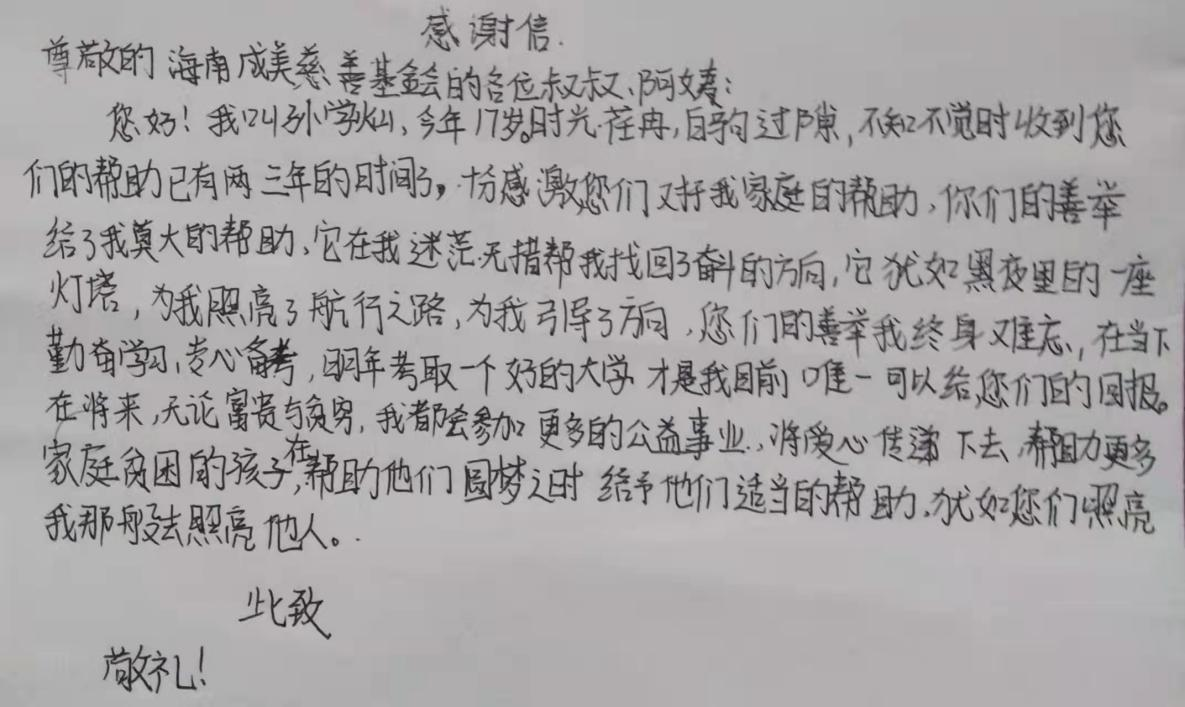 感谢信.
尊敬的海南成美慈善基金会的各位叔叔、阿姨:
您好!我叫孙学灿,今年17岁。时光荏苒,白驹过隙,不知不觉时收到您
们的帮助已有两三年的时间了,十分感激您们对于我家庭的帮助,你们的善举
给了我莫大的帮助、它在我迷茫无措帮我找回了奋斗的方向,它犹如黑夜里的一座
灯塔,为我照亮了航行之路,为我引导了方向,您们的善举我终身难忘,在当下
勤奋学习,专心备考,明年考取一个好的大学才是我目前唯一可以给您们的回报。
在将来,无论富贵与贫穷,我都会参加更多的公益事业,将爱心传递下去,帮助更多
家庭贫困的孩子,在帮助他们圆梦之时给予他们适当的帮助,犹如您们照亮
我那般去照亮他人。
此致
敬礼!